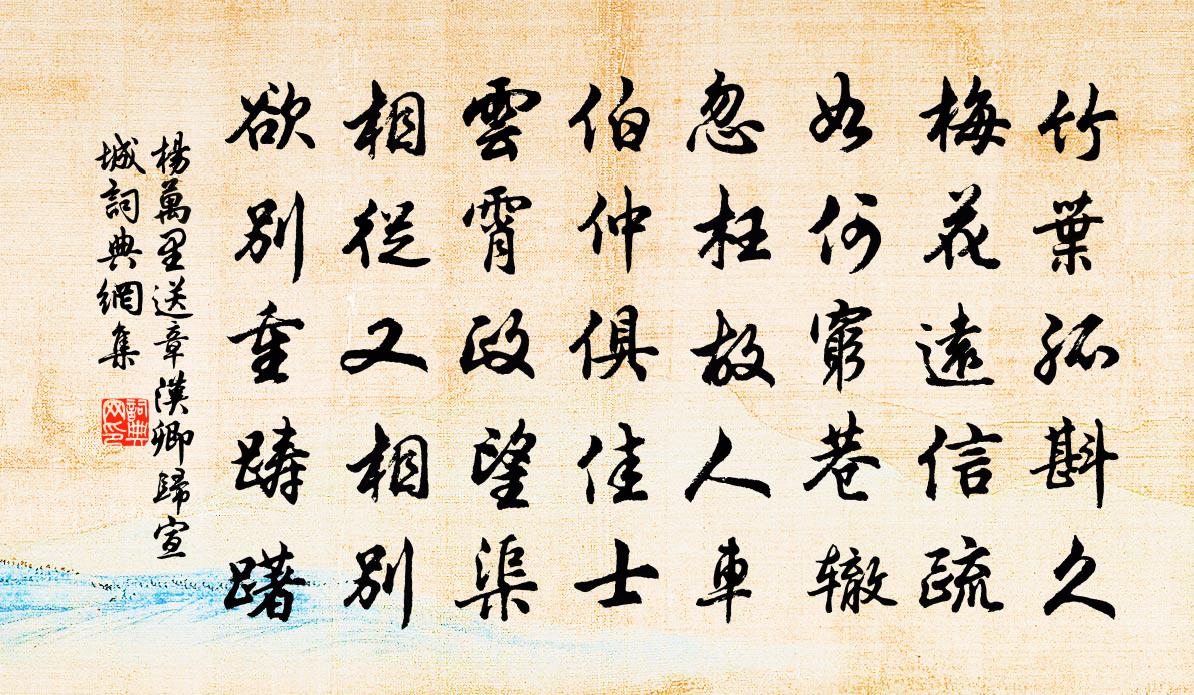 竹葉孤斟久
梅花遠信疏
如何窮巷辙
忽枉故人車
伯仲俱佳士
雲霄政望渠
相從又相別
欲別重踌躇
楊萬里送章漢卿歸宣
城詞典網集
詞典
网印